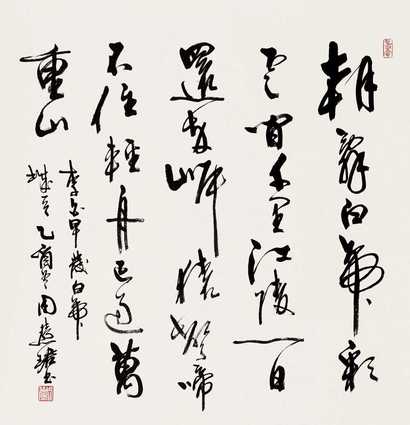 朝辭白帝彩
云間千里江陵一日
還兩岸猿聲啼
不住輕舟已過萬
重山
李白早發白帝
城 乙酉冬周慧珺書